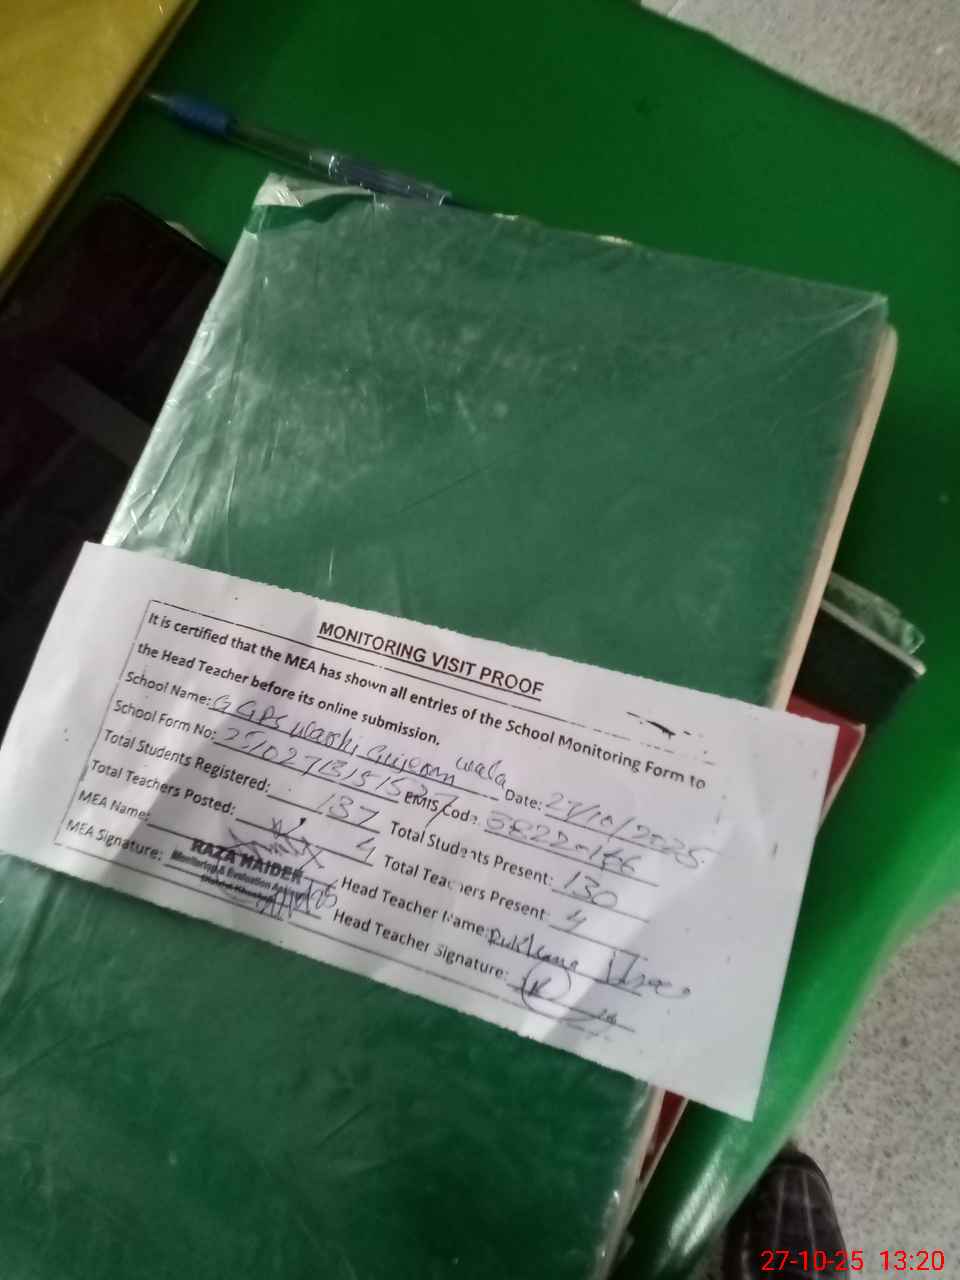 MONITORING VISIT PROOF
It is certified that the MEA has shown all entries of the School Monitoring Form to
the Head Teacher before its online submission.
School Name: GGPS Gujran wala Date: 27/10/2025
School Form No: EMIS Code:
Total Students Registered: 137 Total Students Present: 130
Total Teachers Posted: 4 Total Teachers Present: 4
MEA Name: RAZA HAIDER Head Teacher Name:
Monitoring & Evaluation
MEA Signature: Head Teacher Signature:
27-10-25 13:20